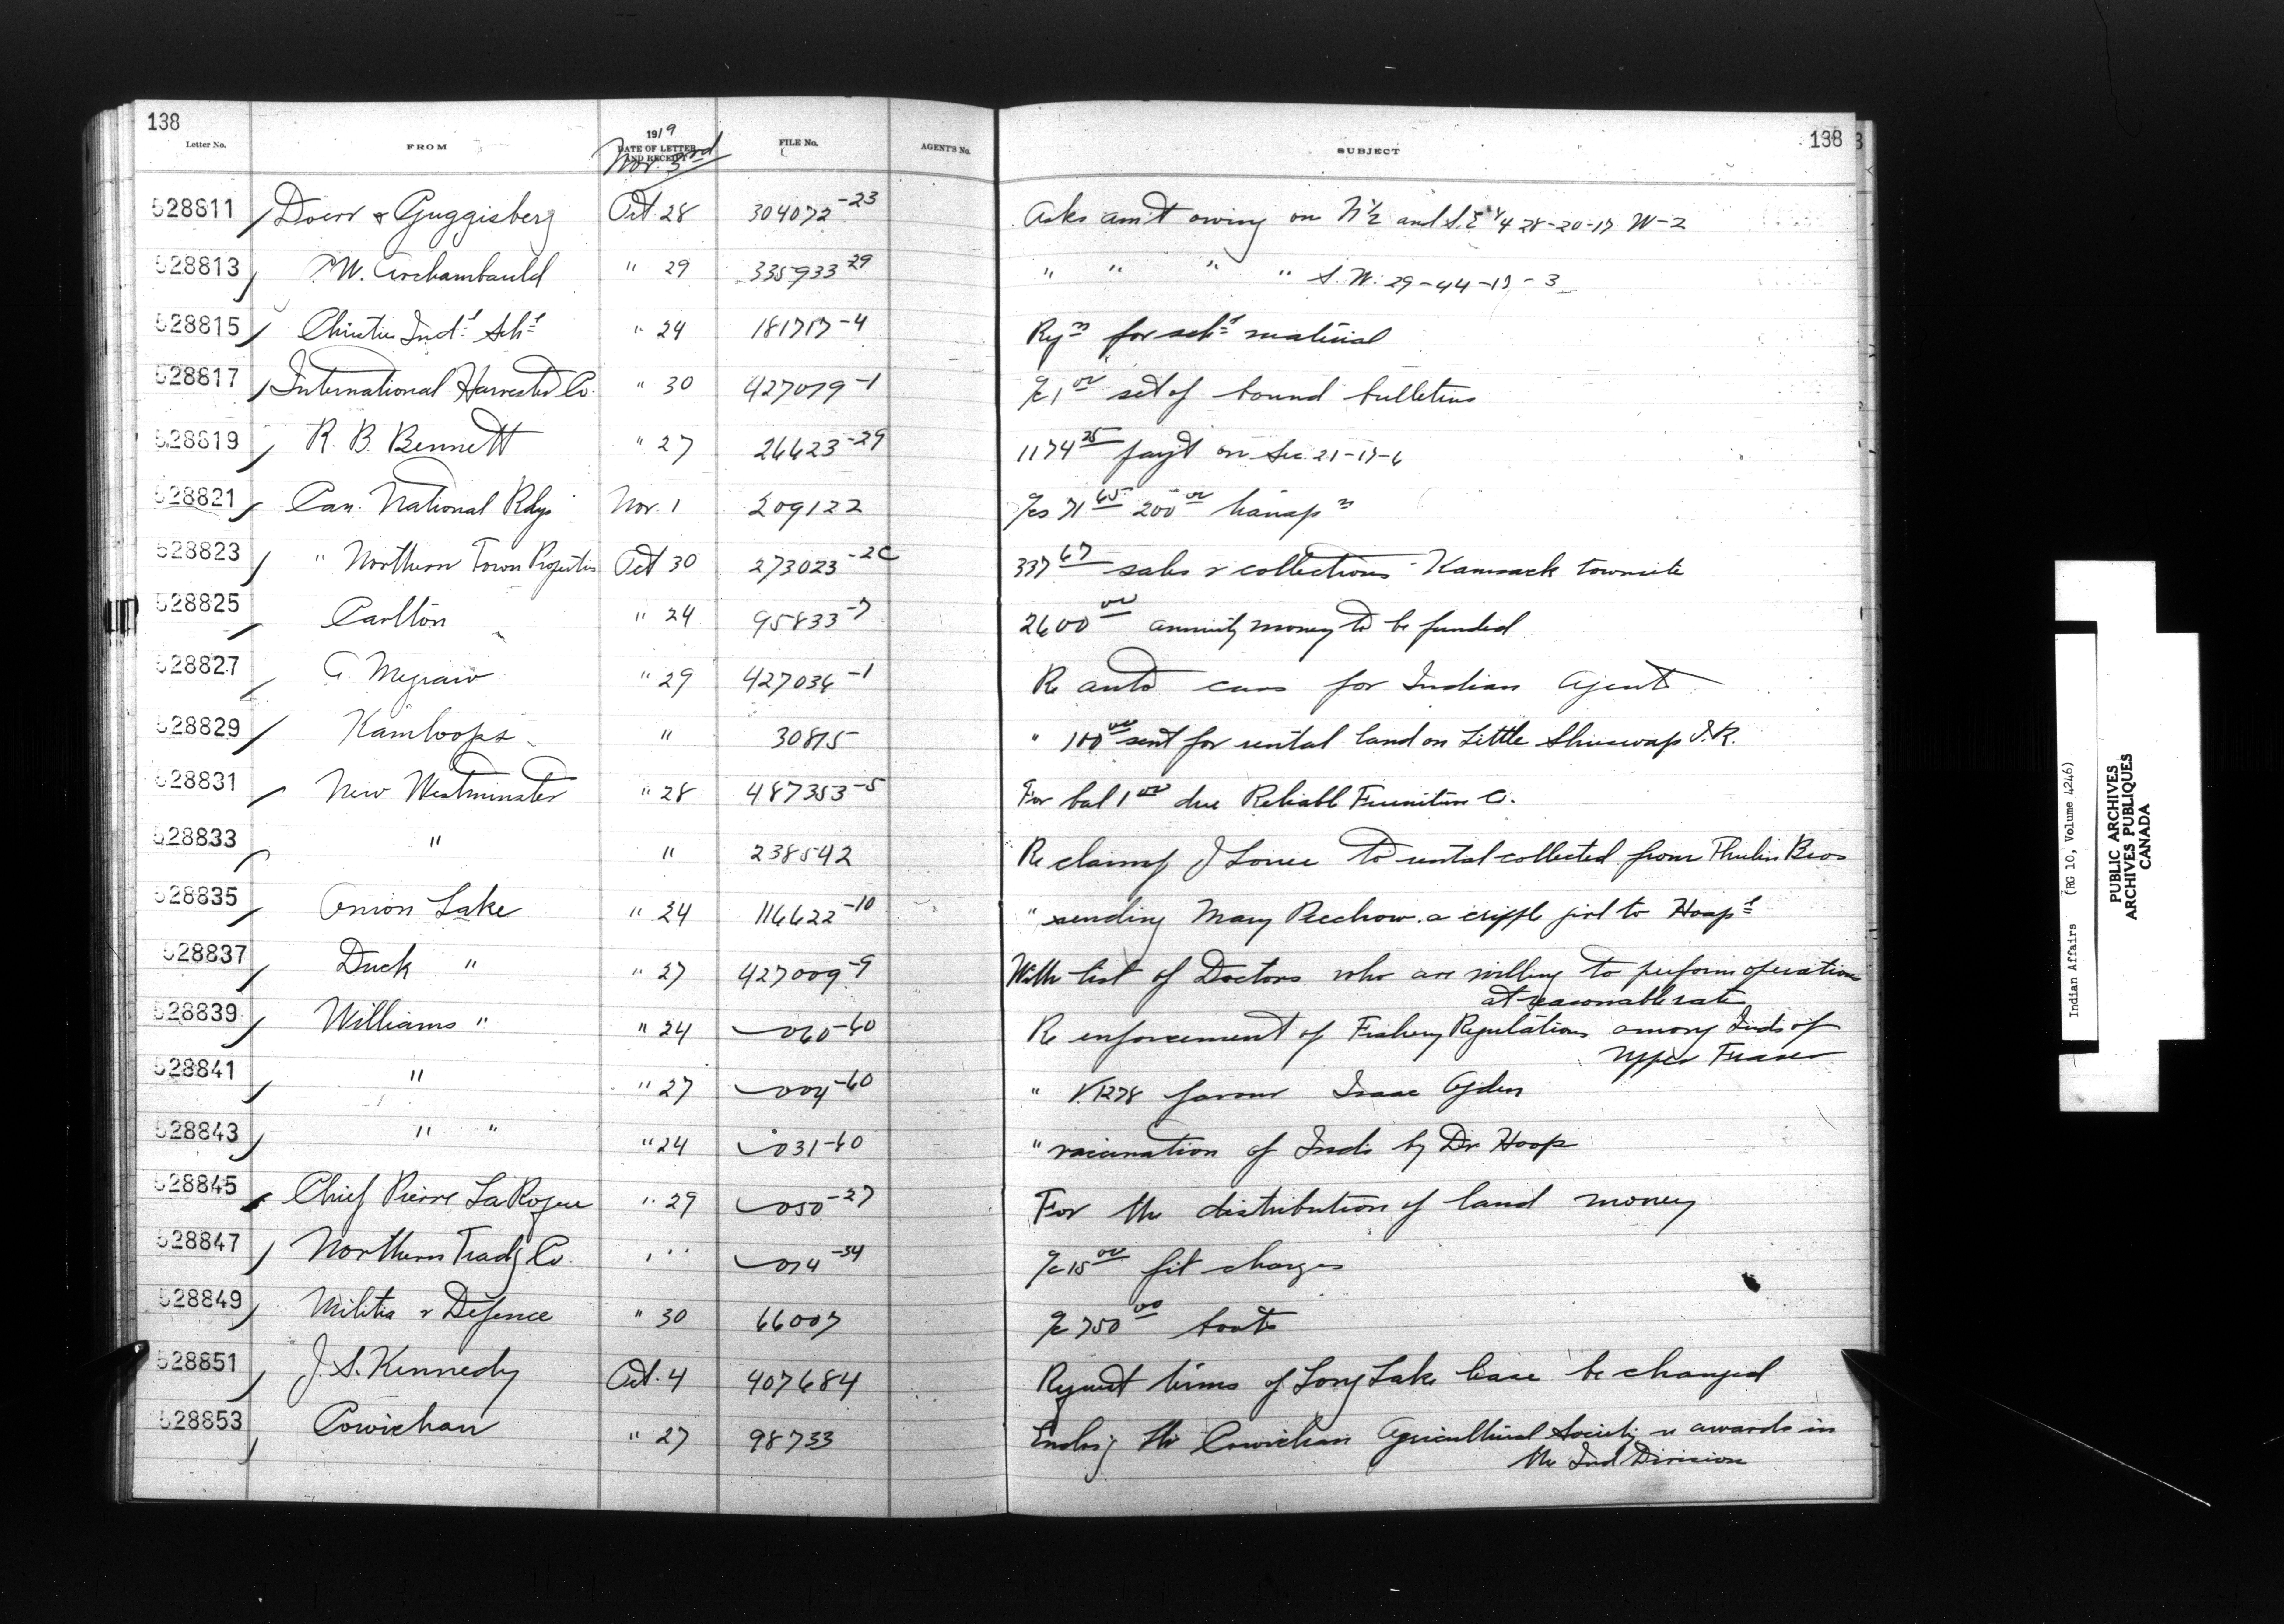 138
138
Letter No.
FROM
1919
DATE OF LETTER AND RECEIPT
Nov. 3rd
FILE No.
AGENT'S No.
SUBJECT
528811 Doerr & Guggisberg Oct 28 304072-23 Asks am't owing on N½ and S.E ¼ 28-20-17 W-2
528813 P.W. Archambauld " 29 335933-29 " " " " S.W. 29-44-17-3
528815 Christie Indl Schl " 24 181717-4 Rqn for schl material
528817 International Harvester Co. " 30 427079-1 a/c 1 00 set of bound bulletins
528819 R. B. Bennett " 27 26623-29 1174 25 payt on Sec. 21-17-6
528821 Can. National Rlys Nov. 1 209122 a/cs 71 65 200 00 transpn
528823 " Northern Town Properties Oct 30 273023-2C 337 67 sales & collections Kamsack townsite
528825 Carlton " 24 95833-7 2600 00 annuity money to be funded
528827 A. Megraw " 29 427036-1 Re auto cars for Indian Agents
528829 Kamloops " 30815 " 100 00 sent for rental land on Little Shuswap I.R.
528831 New Westminster " 28 487353-5 For bal 1 00 due Reliable Furniture Co.
528833 " " 238542 Re claim of J Louie to rental collected from Thulin Bros
528835 Onion Lake " 24 116622-10 " sending Mary Peechow a cripple girl to Hospl
528837 Duck " " 27 427009-9 With list of Doctors who are willing to perform operations
at reasonable rates
528839 Williams " " 24 060-60 Re enforcement of Fishery Regulations among Inds of
Upper Fraser
528841 " " 27 004-60 " V.1278 favour Isaac Ogden
528843 " " " 24 031-60 " vaccination of Inds by Dr Hoops
528845 Chief Pierre LaRoque " 29 050-27 For the distribution of land money
528847 Northern Tradg Co. " " 014-34 a/c 15 00 frt charges
528849 Militia & Defence " 30 66007 a/c 750 00 boots
528851 J. S. Kennedy Oct. 4 407684 Request terms of Long Lake lease be changed
528853 Cowichan " 27 98733 Enclosg the Cowichan Agricultural Society re awards in
the Ind Division
Indian Affairs (RG 10, Volume 4246)
PUBLIC ARCHIVES
ARCHIVES PUBLIQUES
CANADA